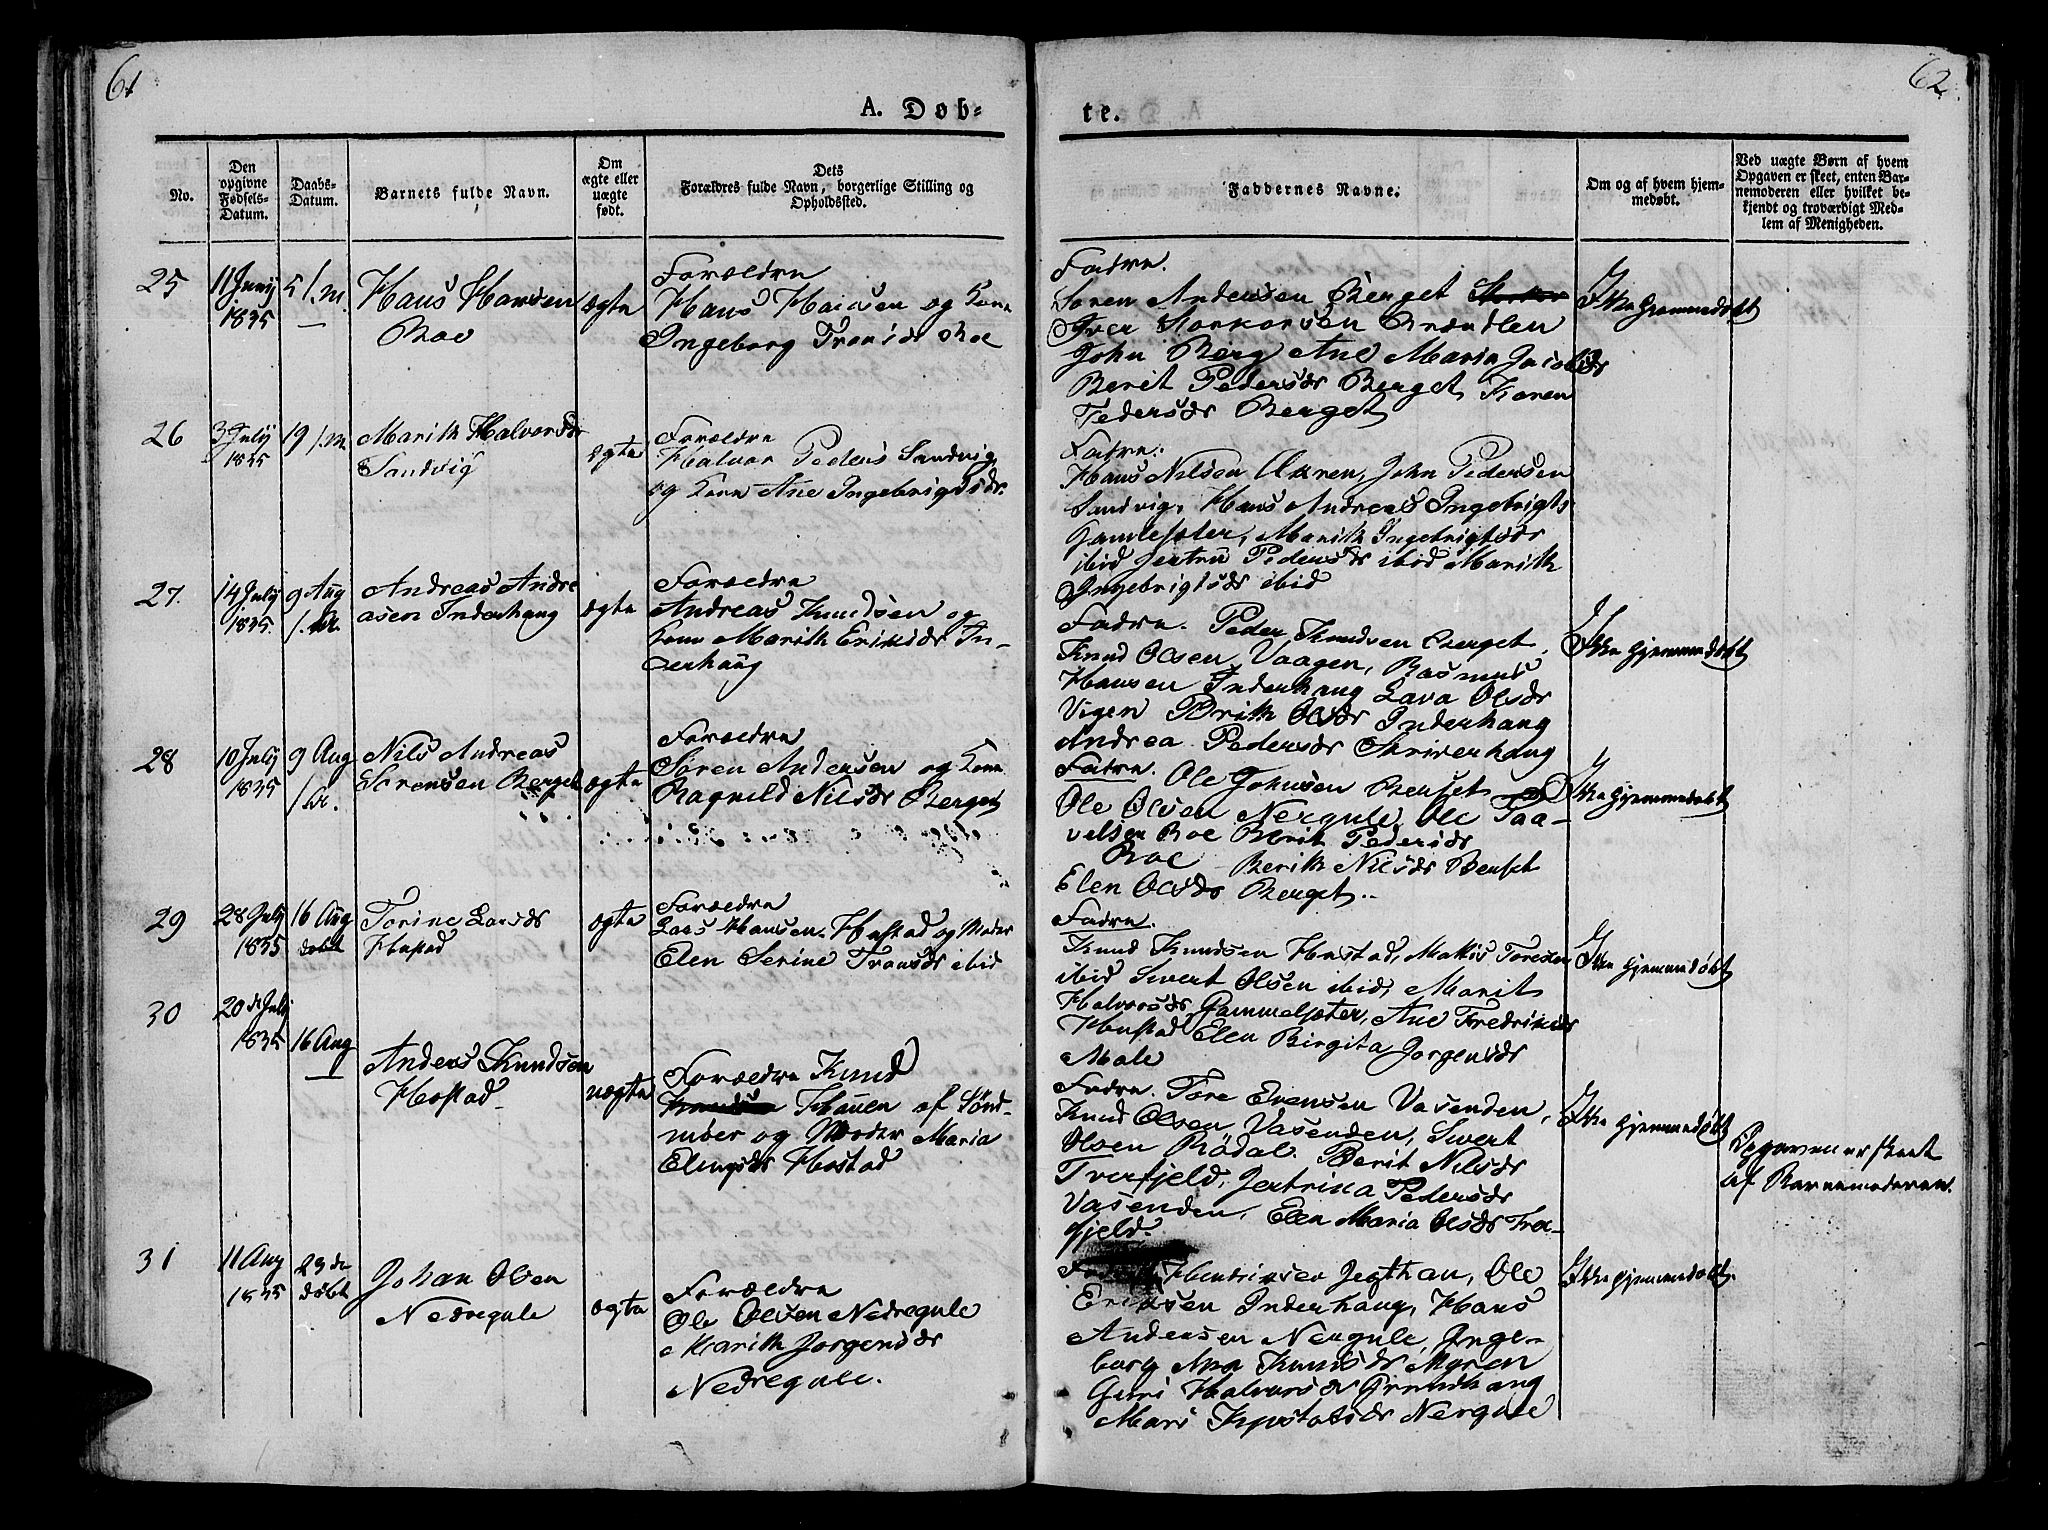 61
62.
A. Døb-
te.
No.
Den opgivne Fødsels-Datum.
Daabs-Datum.
Barnets fulde Navn.
Om ægte eller uægte født.
Dets Forældres fulde Navn, borgerlige Stilling og Opholdssted.
Faddernes Navne.
Om og af hvem hjem-medøbt.
Ved uægte Børn af hvem Opgaven er skeet, enten Bar-nemoderen eller hvilket be-kjendt og troværdigt Med-lem af Menigheden.
25
11 Junij
1835
5 /.m.
Hans Hansen
Roe
ægte
Forældre
Hans Hansen og Kone
Ingeborg Tronsdr Roe
Fadre.
Søren Andersen Berget
Iver Korkorsen Brændlen
John Berg Ane Maria Jacobsdr
Berit Pedersdr Berget, Karen
Pedersdr Berget
Ikke hjemmedøbt
26
3 July
1835
19 /.m.
Marith Halvorsdr
Sandvig
ægte
Forældre
Halvor Peders Sandvig
og Kone Ane Ingebrigtsdr.
Fadre.
Hans Nilsen Aaren, John Pedersen
Sandvig, Hans Andreas Ingebrigts
Gamlesæter, Marith Ingebrigtsdr
ibid Jertru Pedersdr ibid Marith
Ingebrigtsdr ibid
27.
14 July
1835.
9 Aug
Andreas Andre
asen Inderhaug
ægte
Forældre
Andreas Knudsen og
Kone Marith Eriksdr In-
derhaug
Fadre. Peder Knudsen Berget
Knud Olsen Vaagen, Rasmus
Hansen Inderhaug Lava Olsdr
Vigen Brith Olsdr Inderhaug
Andrea Pedersdr Skriverhaug
Ikke hjemmedøbt
28
10 July
1835
9 Aug
Nils Andreas
Sørensen Berget
ægte
Forældre
Søren Andersen og Kone
Ragnild Nilsdr Berget
Fadre. Ole Johnsen Benset
Ole Olsen Nergule Ole Paa-
velsen Roe Berit Pedersdr
Roe Berith Nilsdr Benset
Elen Olsdr Berget.
Ikke hjemmedøbt
29
28 July
1835
16 Aug
døbt
Torine Larsdr
Hustad
ægte
Forældre
Lars Hansen Hustad og Moder
Elen Serine Tronsdr ibid
Fadre.
Knud Knudsen Hustad, Mattis Toresen
ibid Siwert Olsen ibid, Marit
Halvorsdr Gammelsæter, Ane Fredriksdr
Hustad Elen Birgita Jørgensdr
Male
Ikke hjemmedøbt
30
20 de July
1835
16 Aug
Anders Knudsen
Hostad
uægte
Forældre Knud
Hauen af Sønd-
møer og Moder Maria
Elingsdr Hostad
Fadre. Tore Evensen Vasenden,
Knud Olsen Vasenden, Siwert
Olsen Rödal. Berit Nilsdr
Tverfjeld, Jertrina Pedersdr
Vasenden, Elen Maria Olsdr Tver-
fjeld.
Ikke hjemmedøbt
Opgaven er skeet
af Barnemoderen.
31
11 Aug
1835
23 de
døbt
Johan Olsen
Nedregule
ægte
Forældre
Ole Olsen Nedregule
Marith Jørgensdr
Nedregule.
Hendriksen Jegthan, Ole
Ericksen Inderhaug, Hans
Andersen Nergule, Inge-
borg Ana Knudsdr Myren
Guri Halvorsdr Grundhaug
Mari Kristofsdr Nergule
Ikke hjemmedøbt.